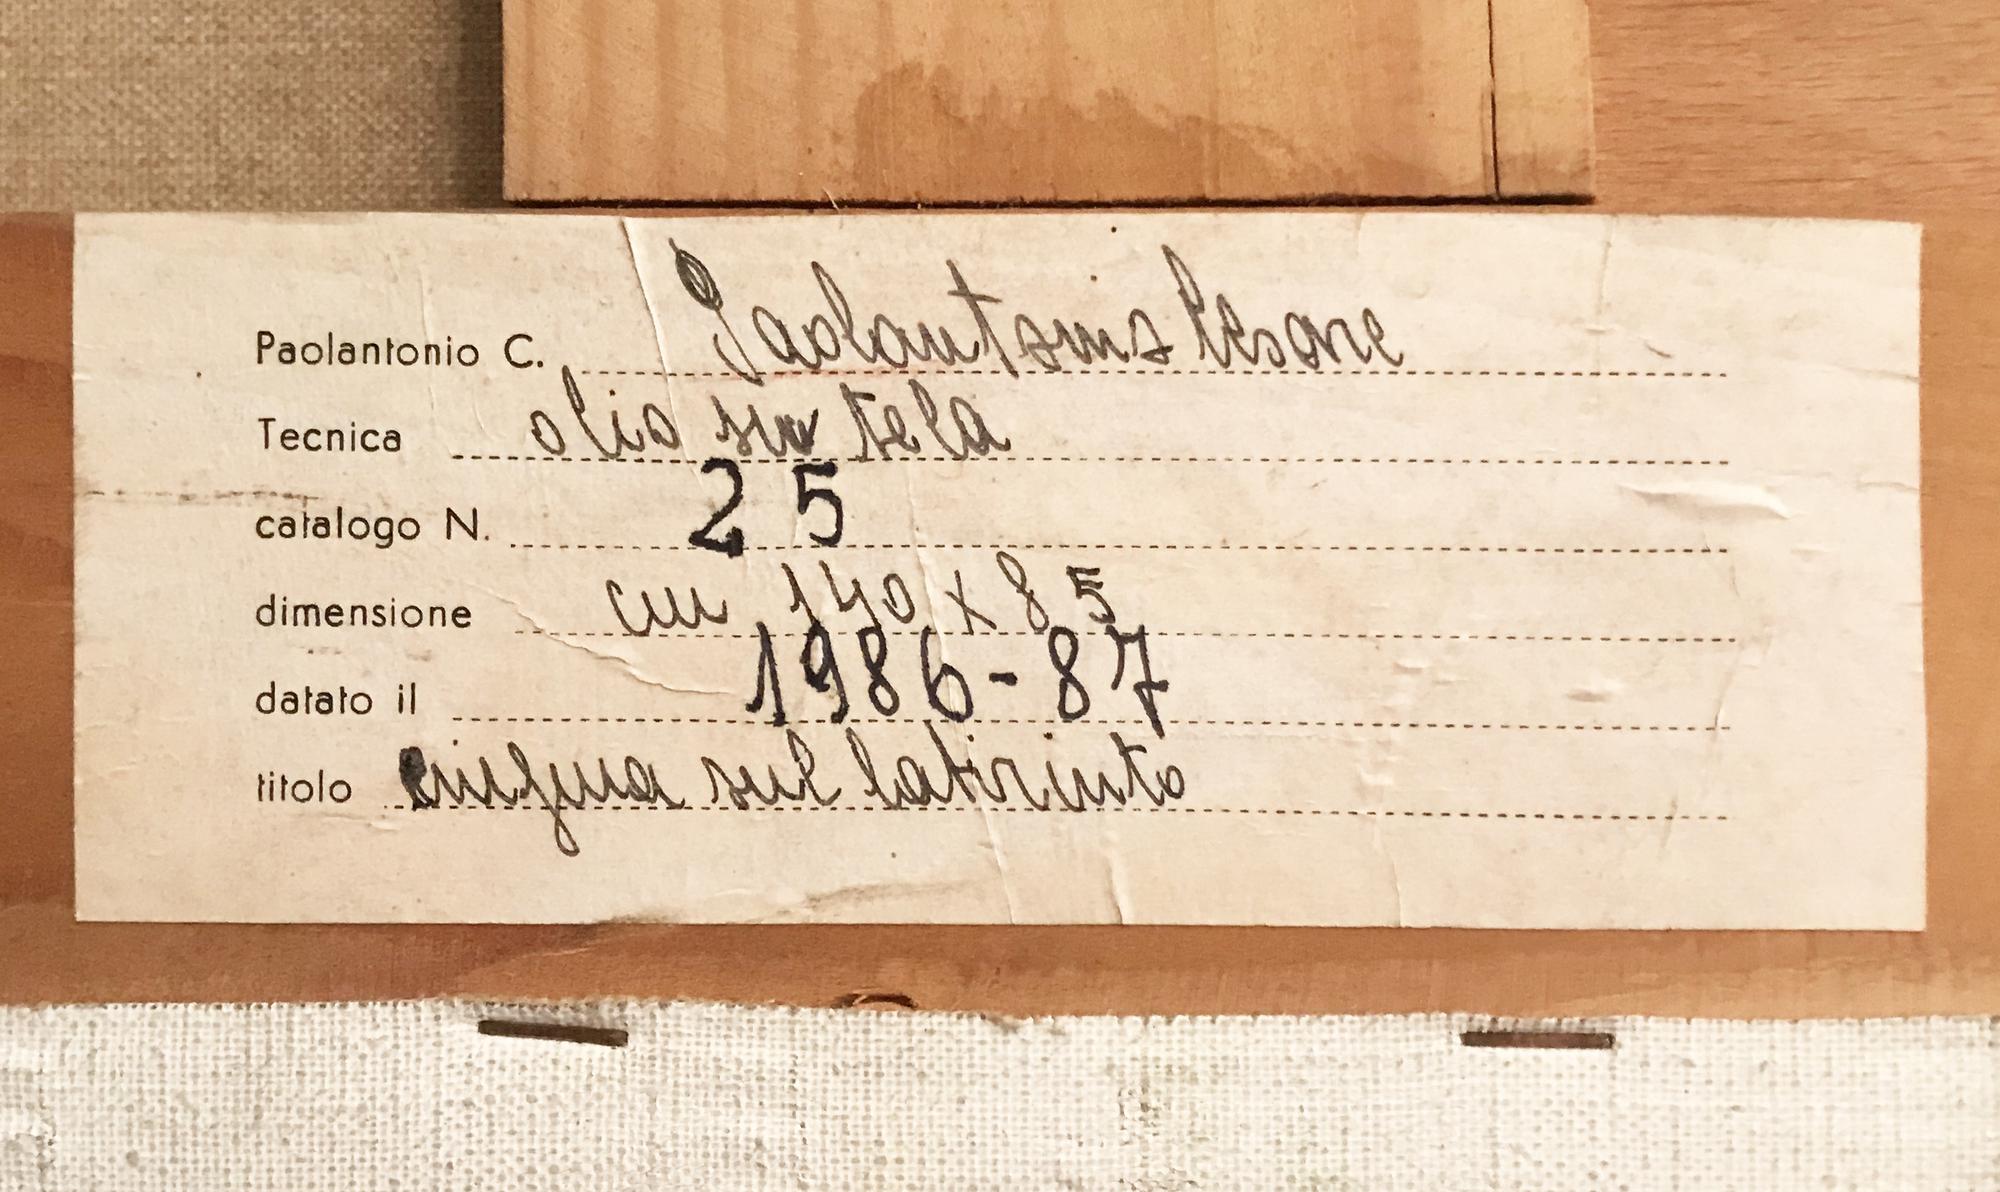 Paolantonio C. Paolantonio Cesare
Tecnica olio su tela
catalogo N. 25
dimensione cm 140 x 85
datato il 1986-87
titolo enigma sul labirinto